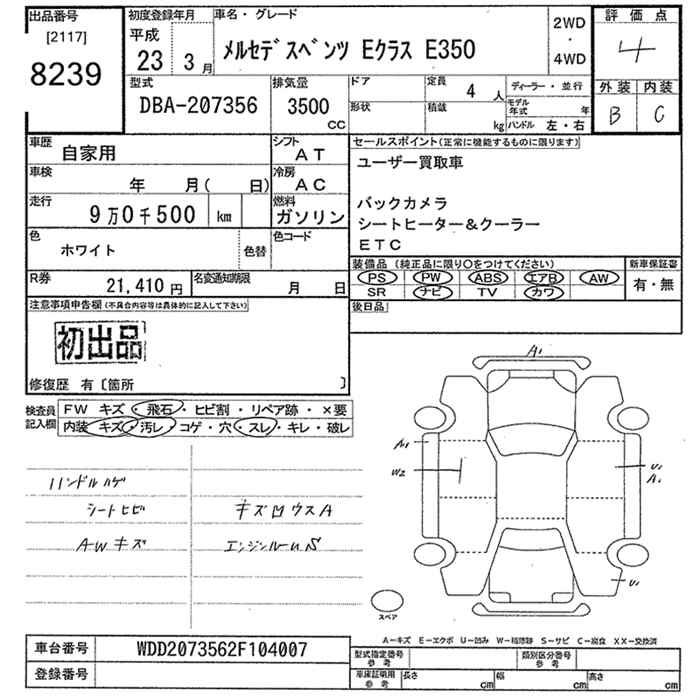 出品番号
[2117]
8239
初度登録年月
平成
23 3月
車名・グレード
メルセデスベンツ Eクラス E350
2WD
・
4WD
評価点
4
外装 内装
B C
型式
DBA-207356
排気量
3500
CC
ドア
形状
定員
4人
積載
kg
ディーラー・並行
モデル年式 年
ハンドル 左・右
車歴
自家用
シフト
AT
車検
年 月( 日)
冷房
AC
走行
9万0千500 km
燃料
ガソリン
色
ホワイト
色替
色コード
R券
21,410円
名変通知期限
月 日
セールスポイント(正常に機能するものに限ります)
ユーザー買取車
バックカメラ
シートヒーター&クーラー
ETC
装備品 (純正品に限り〇をつけてください)
PS PW ABS エアB AW
SR ナビ TV カワ
新車保証書
有・無
後日品
注意事項申告欄(不具合内容等は具体的に記入して下さい)
初出品
修復歴 有〔箇所 〕
検査員
記入欄
FW キズ・飛石・ヒビ割・リペア跡・×要
内装 キズ・汚レ・コゲ・穴・スレ・キレ・破レ
ハンドルハゲ
シートヒビ
AWキズ
キズ凹ウスA
エンジンルームS
A1
A1
W2
U1
A1
U1
スペア
A-キズ E-エクボ U-凹み W-補修跡 S-サビ C-腐食 XX-交換済
車台番号
WDD2073562F104007
登録番号
型式指定番号
参考
類別区分番号
参考
車庫証明用
参考
長さ cm
幅 cm
高さ cm